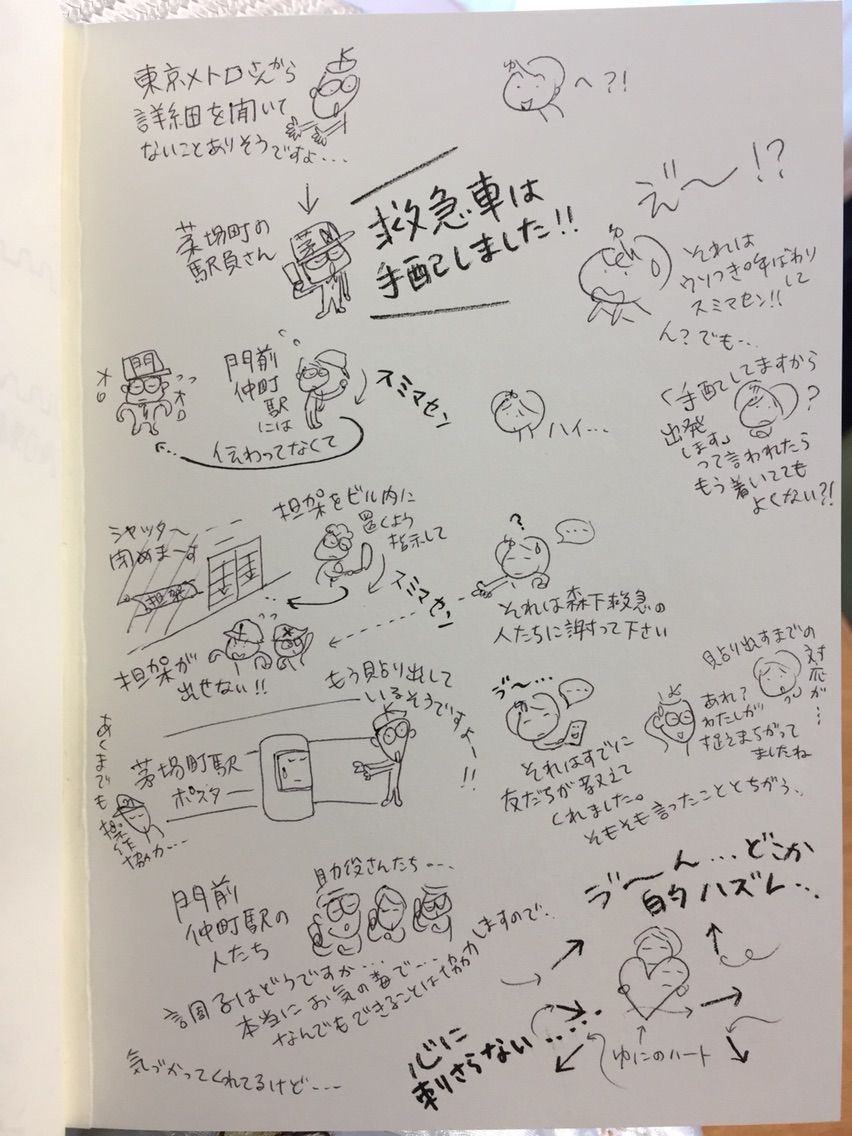 東京メトロさんから
詳細を聞いて
ないことありそうですよ...
へ?!
茅場町の
駅員さん
救急車は
手配しました!!
え゛〜!?
それは
ウソつき呼ばわりして
スミマセン!!
ん?でも...
門
オロ
オロ
門前
仲町駅
には
伝わってなくて
スミマセン
ハイ...
「手配してますから
出発
します」
?
って言われたら
もう着いてても
よくない?!
シャッター
閉めまーす
担架
担架をビル内に
置くよう
指示して
スミマセン
?
...
それは森下救急の
人たちに謝って下さい
担架が
出せない!!
もう貼り出して
いるそうですよー!!
茅場町駅
ポスター
あくまでも
捜査
協力...
う〜...
...
それはすでに
友だちが教えて
くれました。
そもそも言ったこととちがう、
貼り出すまでの
対応が...
あれ?
わたしが
捉えまちがって
ましたね
門前
仲町駅の
人たち
助役さんたち...
調子はどうですか...
本当にお気の毒で...
なんでもできることは協力しますので..
気づかってくれてるけど...
う〜ん...どこか
的ハズレ...
心に
刺さらない.....
ゆにのハート